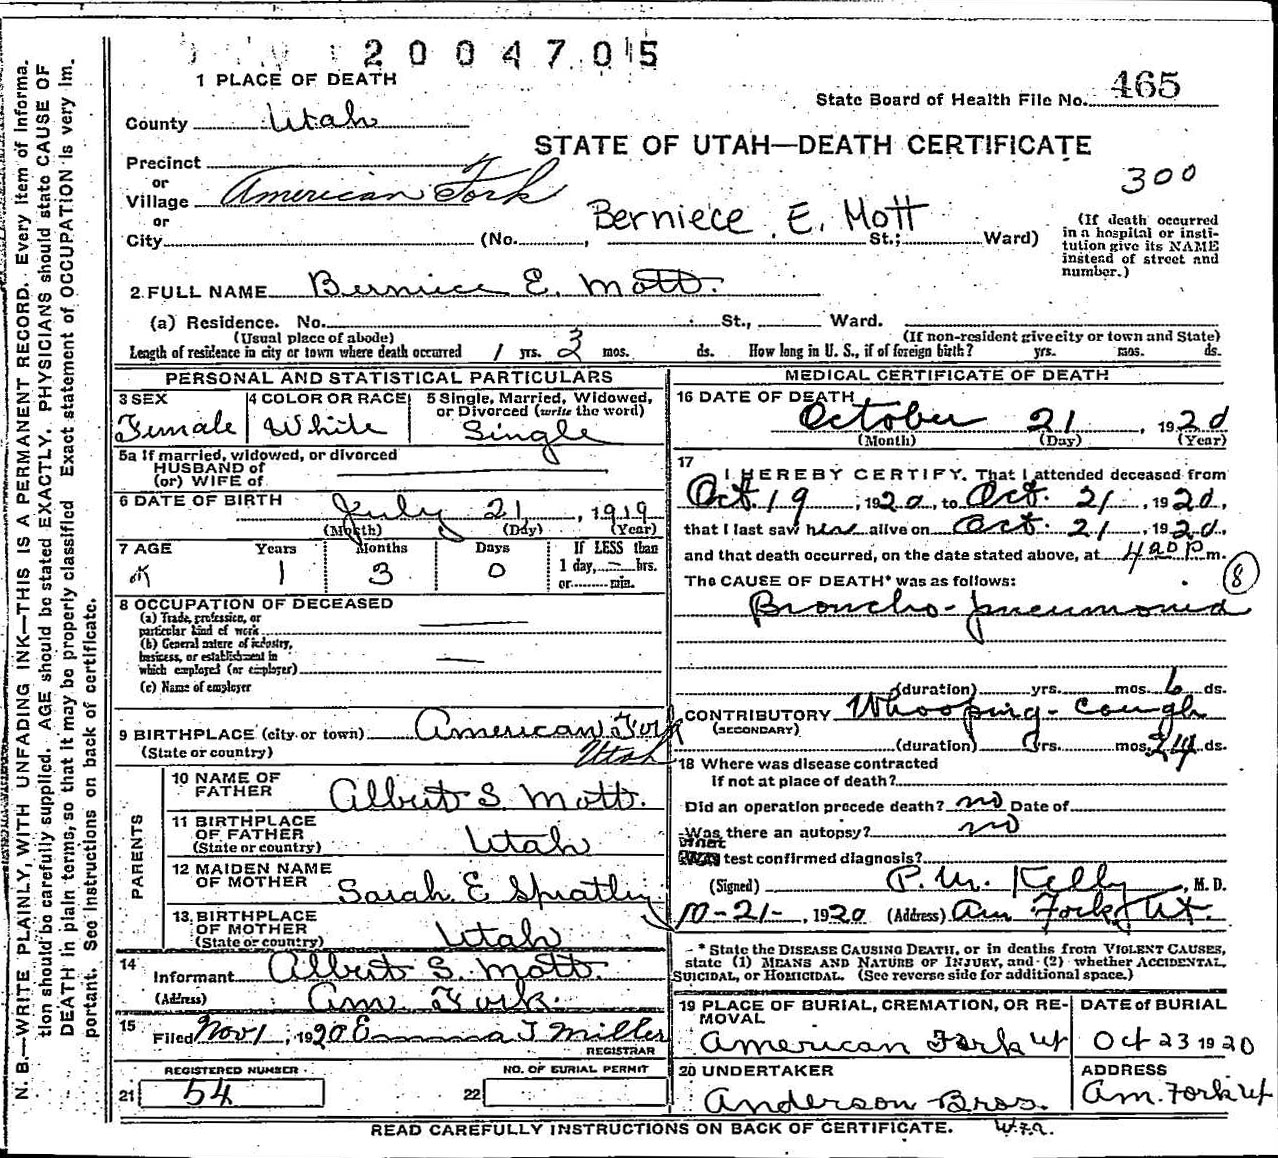 2004705
1 PLACE OF DEATH
State Board of Health File No. 465
County Utah
STATE OF UTAH—DEATH CERTIFICATE
Precinct
or
Village American Fork
300
or
City (No. , Berniece E. Mott St.; Ward)
(If death occurred
in a hospital or insti-
tution give its NAME
instead of street and
number.)
2 FULL NAME Berniece E. Mott.
(a) Residence. No. St., Ward.
(Usual place of abode) (If non-resident give city or town and State)
Length of residence in city or town where death occurred 1 yrs. 3 mos. ds. How long in U. S., if of foreign birth? yrs. mos. ds.
PERSONAL AND STATISTICAL PARTICULARS
3 SEX
Female
4 COLOR OR RACE
White
5 Single, Married, Widowed,
or Divorced (write the word)
Single
5a If married, widowed, or divorced
HUSBAND of
(or) WIFE of
6 DATE OF BIRTH
July 21, 1919
(Month) (Day) (Year)
7 AGE Years Months Days If LESS than
1 3 0 1 day, hrs.
or min.
8 OCCUPATION OF DECEASED
(a) Trade, profession, or
particular kind of work
(b) General nature of industry,
business, or establishment in
which employed (or employer)
(c) Name of employer
9 BIRTHPLACE (city or town) American Fork
(State or country) Utah
PARENTS
10 NAME OF
FATHER Albert S. Mott.
11 BIRTHPLACE
OF FATHER
(State or country) Utah
12 MAIDEN NAME
OF MOTHER Sarah E Spratley
13 BIRTHPLACE
OF MOTHER
(State or country) Utah
14
Informant Albert S. Mott.
(Address) Am. Fork.
15
Filed Nov 1, 1920 Emma T Miller
REGISTRAR
REGISTERED NUMBER
NO. OF BURIAL PERMIT
21 54
22
MEDICAL CERTIFICATE OF DEATH
16 DATE OF DEATH
October 21, 1920
(Month) (Day) (Year)
17
I HEREBY CERTIFY, That I attended deceased from
Oct. 19, 1920, to Oct. 21, 1920,
that I last saw her alive on Oct. 21, 1920,
and that death occurred, on the date stated above, at 4 20 P m.
The CAUSE OF DEATH* was as follows:
8
Broncho-pneumonia
(duration) yrs. mos. 6 ds.
CONTRIBUTORY Whooping-cough
(SECONDARY)
(duration) yrs. mos. 24 ds.
18 Where was disease contracted
if not at place of death?
Did an operation precede death? no Date of
Was there an autopsy? no
What
test confirmed diagnosis?
(Signed) P. M. Kelly, M. D.
10-21-, 1920 (Address) Am Fork, Ut.
* State the DISEASE CAUSING DEATH, or in deaths from VIOLENT CAUSES,
state (1) MEANS AND NATURE OF INJURY, and (2) whether ACCIDENTAL,
SUICIDAL, or HOMICIDAL. (See reverse side for additional space.)
19 PLACE OF BURIAL, CREMATION, OR RE-
MOVAL
American Fork Ut
DATE of BURIAL
Oct 23 1920
20 UNDERTAKER
Anderson Bros.
ADDRESS
Am. Fork Ut
READ CAREFULLY INSTRUCTIONS ON BACK OF CERTIFICATE.
N. B.—WRITE PLAINLY, WITH UNFADING INK—THIS IS A PERMANENT RECORD. Every item of informa-
tion should be carefully supplied. AGE should be stated EXACTLY. PHYSICIANS should state CAUSE OF
DEATH in plain terms, so that it may be properly classified. Exact statement of OCCUPATION is very im-
portant. See instructions on back of certificate.